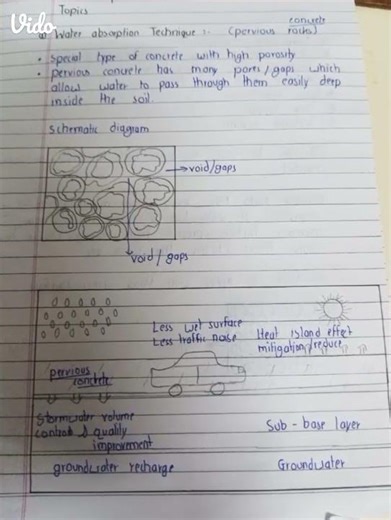 Topics
Vido
concrete
Water absorption Technique :- (pervious rocks)
• special type of concrete with high porosity
• pervious concrete has many pores/gaps which
allow water to pass through them easily deep
inside the soil.
schematic diagram
void/gaps
void/gaps
Less wet surface
Less traffic noise
Heat island effect
mitigation/reduce
pervious
concrete
stormwater volume
control & quality
improvement
Sub-base layer
groundwater recharge
Groundwater